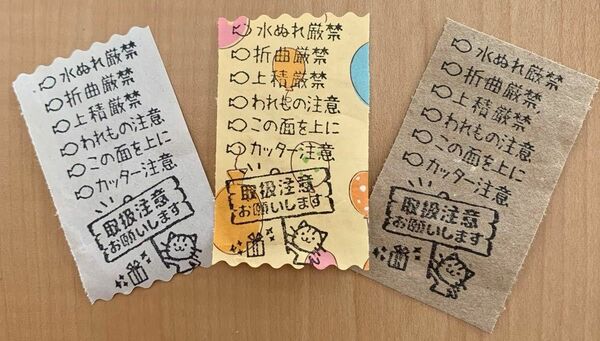 水ぬれ厳禁
折曲厳禁
上積厳禁
われもの注意
この面を上に
カッター注意
取扱注意
お願いします
水ぬれ厳禁
折曲厳禁
上積厳禁
われもの注意
この面を上に
カッター注意
取扱注意
お願いします
水ぬれ厳禁
折曲厳禁
上積厳禁
われもの注意
この面を上に
カッター注意
取扱注意
お願いします